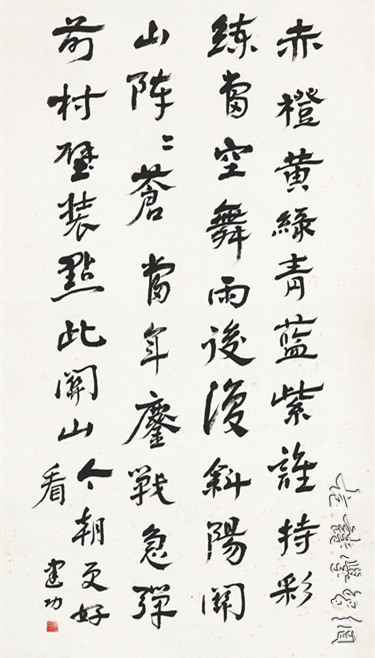 赤橙黄綠青藍紫誰持彩
練當空舞雨後復斜陽關
山陣〻蒼當年鏖戰急彈
前村壁裝點此關山
今朝更好
看
建功